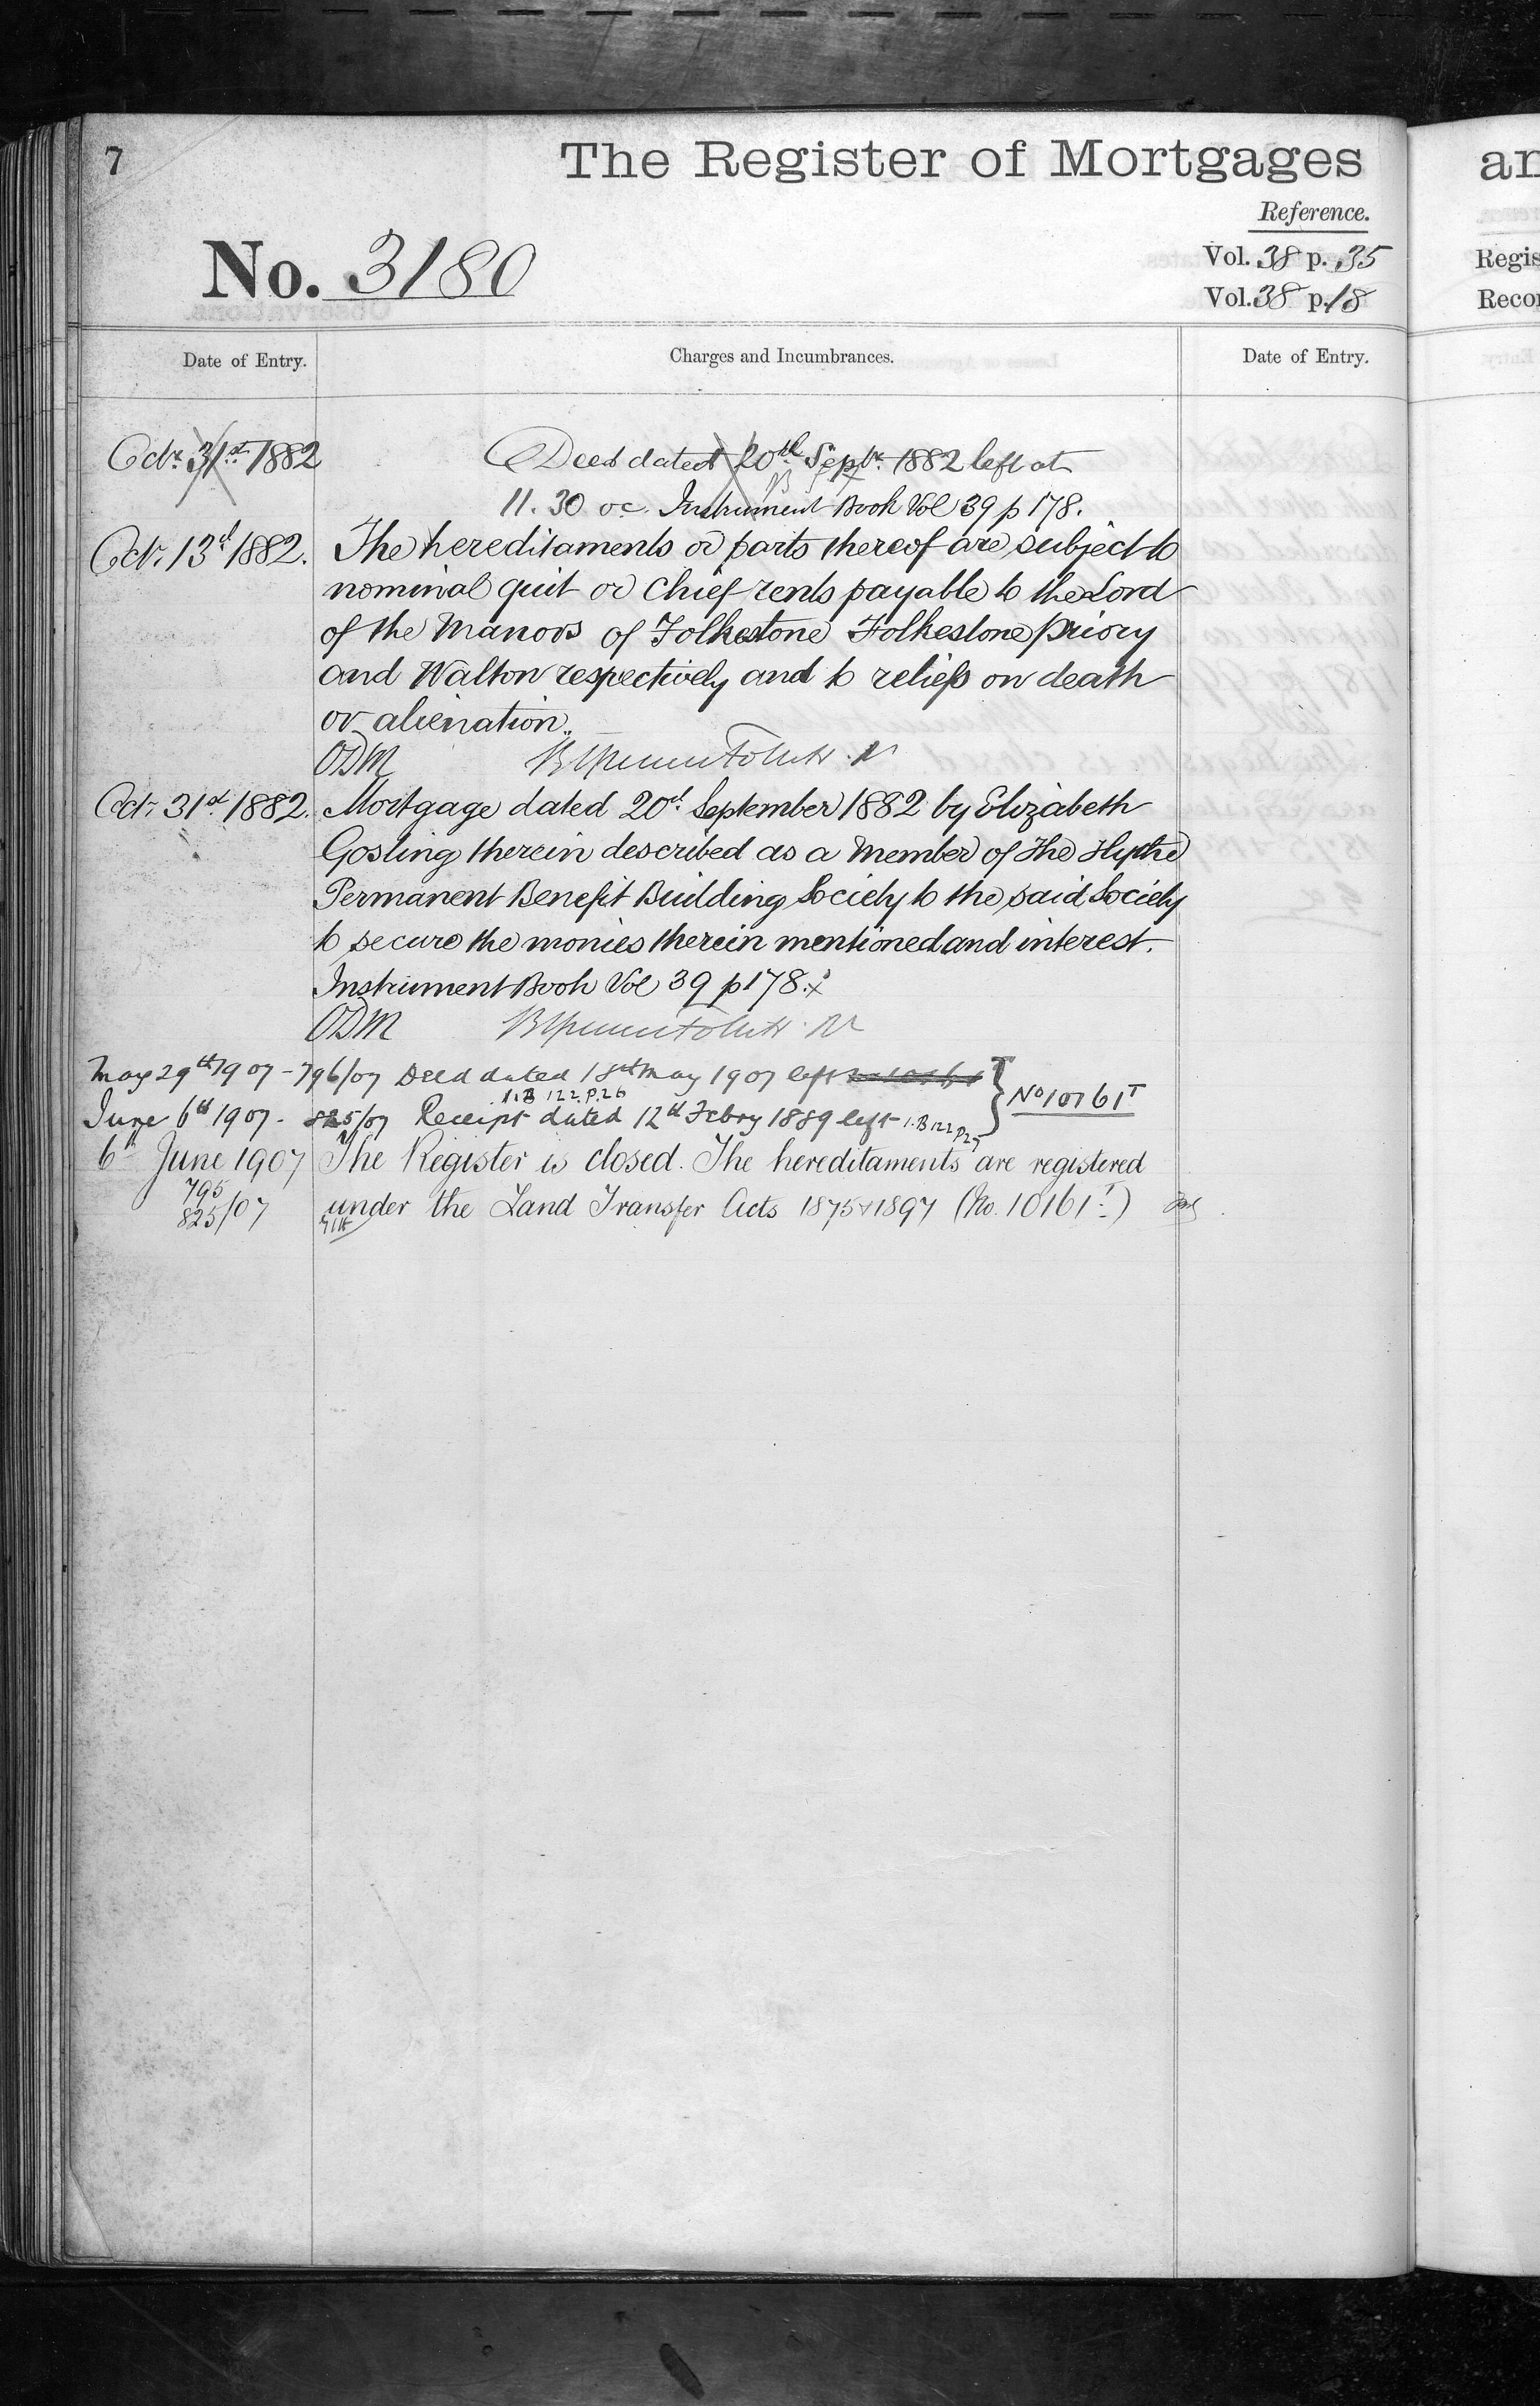 7
The Register of Mortgages
an
Reference.
No. 3180
Vol. 38 p. 35
Regis
Vol. 38 p. 18
Recor
Date of Entry.
Charges and Incumbrances.
Date of Entry.
Octr. 31st 1882
Deed dated 20th Septr. 1882 left at
11.30 oc. Instrument Book Vol 39 p 178.
Oct. 13d 1882.
The hereditaments or parts thereof are subject to
nominal quit or chief rents payable to the Lord
of the Manors of Folkestone Folkestone priory
and Walton respectively and to reliefs on death
or alienation.
ODM
Oct. 31st 1882.
Mortgage dated 20th September 1882 by Elizabeth
Gosling therein described as a Member of The Hythe
Permanent Benefit Building Society to the said Society
to secure the monies therein mentioned and interest.
Instrument Book Vol 39 p 178.
ODM
May 29th 1907 - 796/07 Deed dated 18th May 1907 left
I.B 122. P. 26
No 10161T
June 6th 1907 - 825/07 Receipt dated 12th Febry 1889 left I.B 122 P27
6th June 1907
The Register is closed. The hereditaments are registered
795
825/07
under the Land Transfer Acts 1875 & 1897 (No. 10161T)